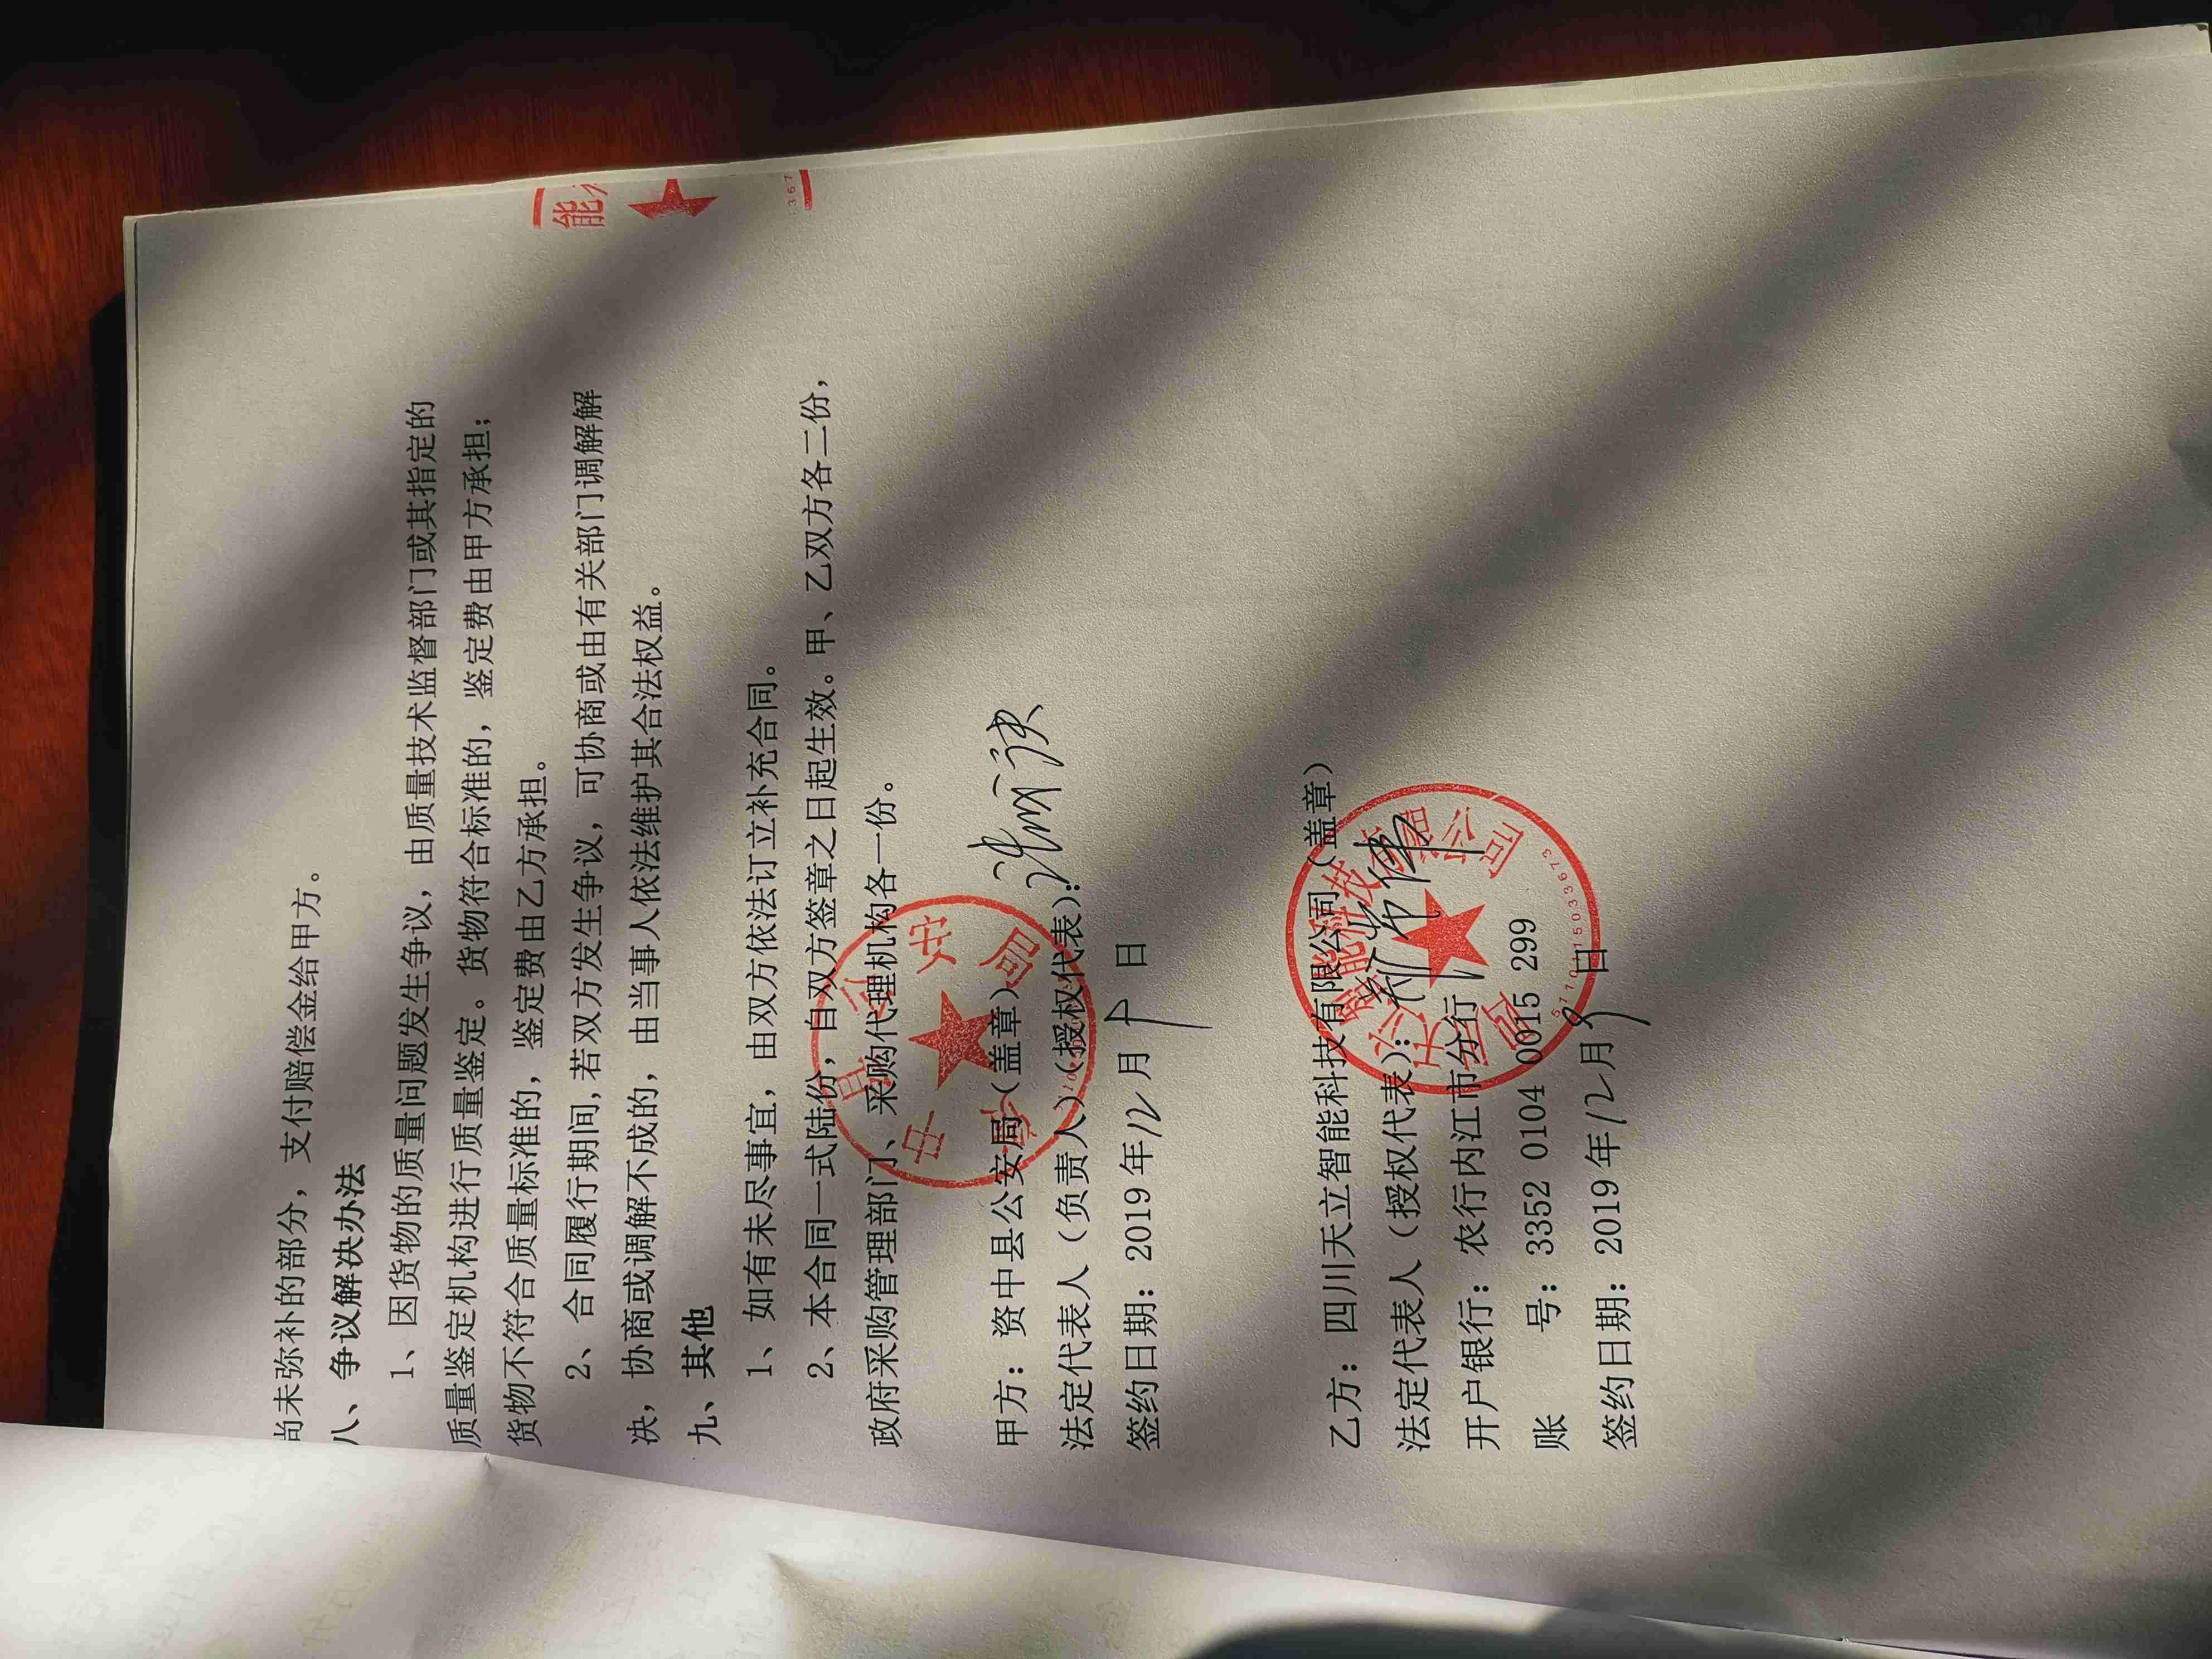 尚未弥补的部分，支付赔偿金给甲方。
八、争议解决办法
1、因货物的质量问题发生争议，由质量技术监督部门或其指定的
质量鉴定机构进行质量鉴定。货物符合标准的，鉴定费由甲方承担；
货物不符合质量标准的，鉴定费由乙方承担。
2、合同履行期间,若双方发生争议，可协商或由有关部门调解解
决，协商或调解不成的，由当事人依法维护其合法权益。
九、其他
1、如有未尽事宜，由双方依法订立补充合同。
2、本合同一式陆份，自双方签章之日起生效。甲、乙双方各二份，
政府采购管理部门、采购代理机构各一份。
甲方：资中县公安局（盖章）
法定代表人（负责人）（授权代表）：
签约日期：2019年12月 日
乙方：四川天立智能科技有限公司（盖章）
法定代表人（授权代表）：
开户银行：农行内江市分行
账 号：3352 0104 0015 299
签约日期：2019年12月 日
能
367